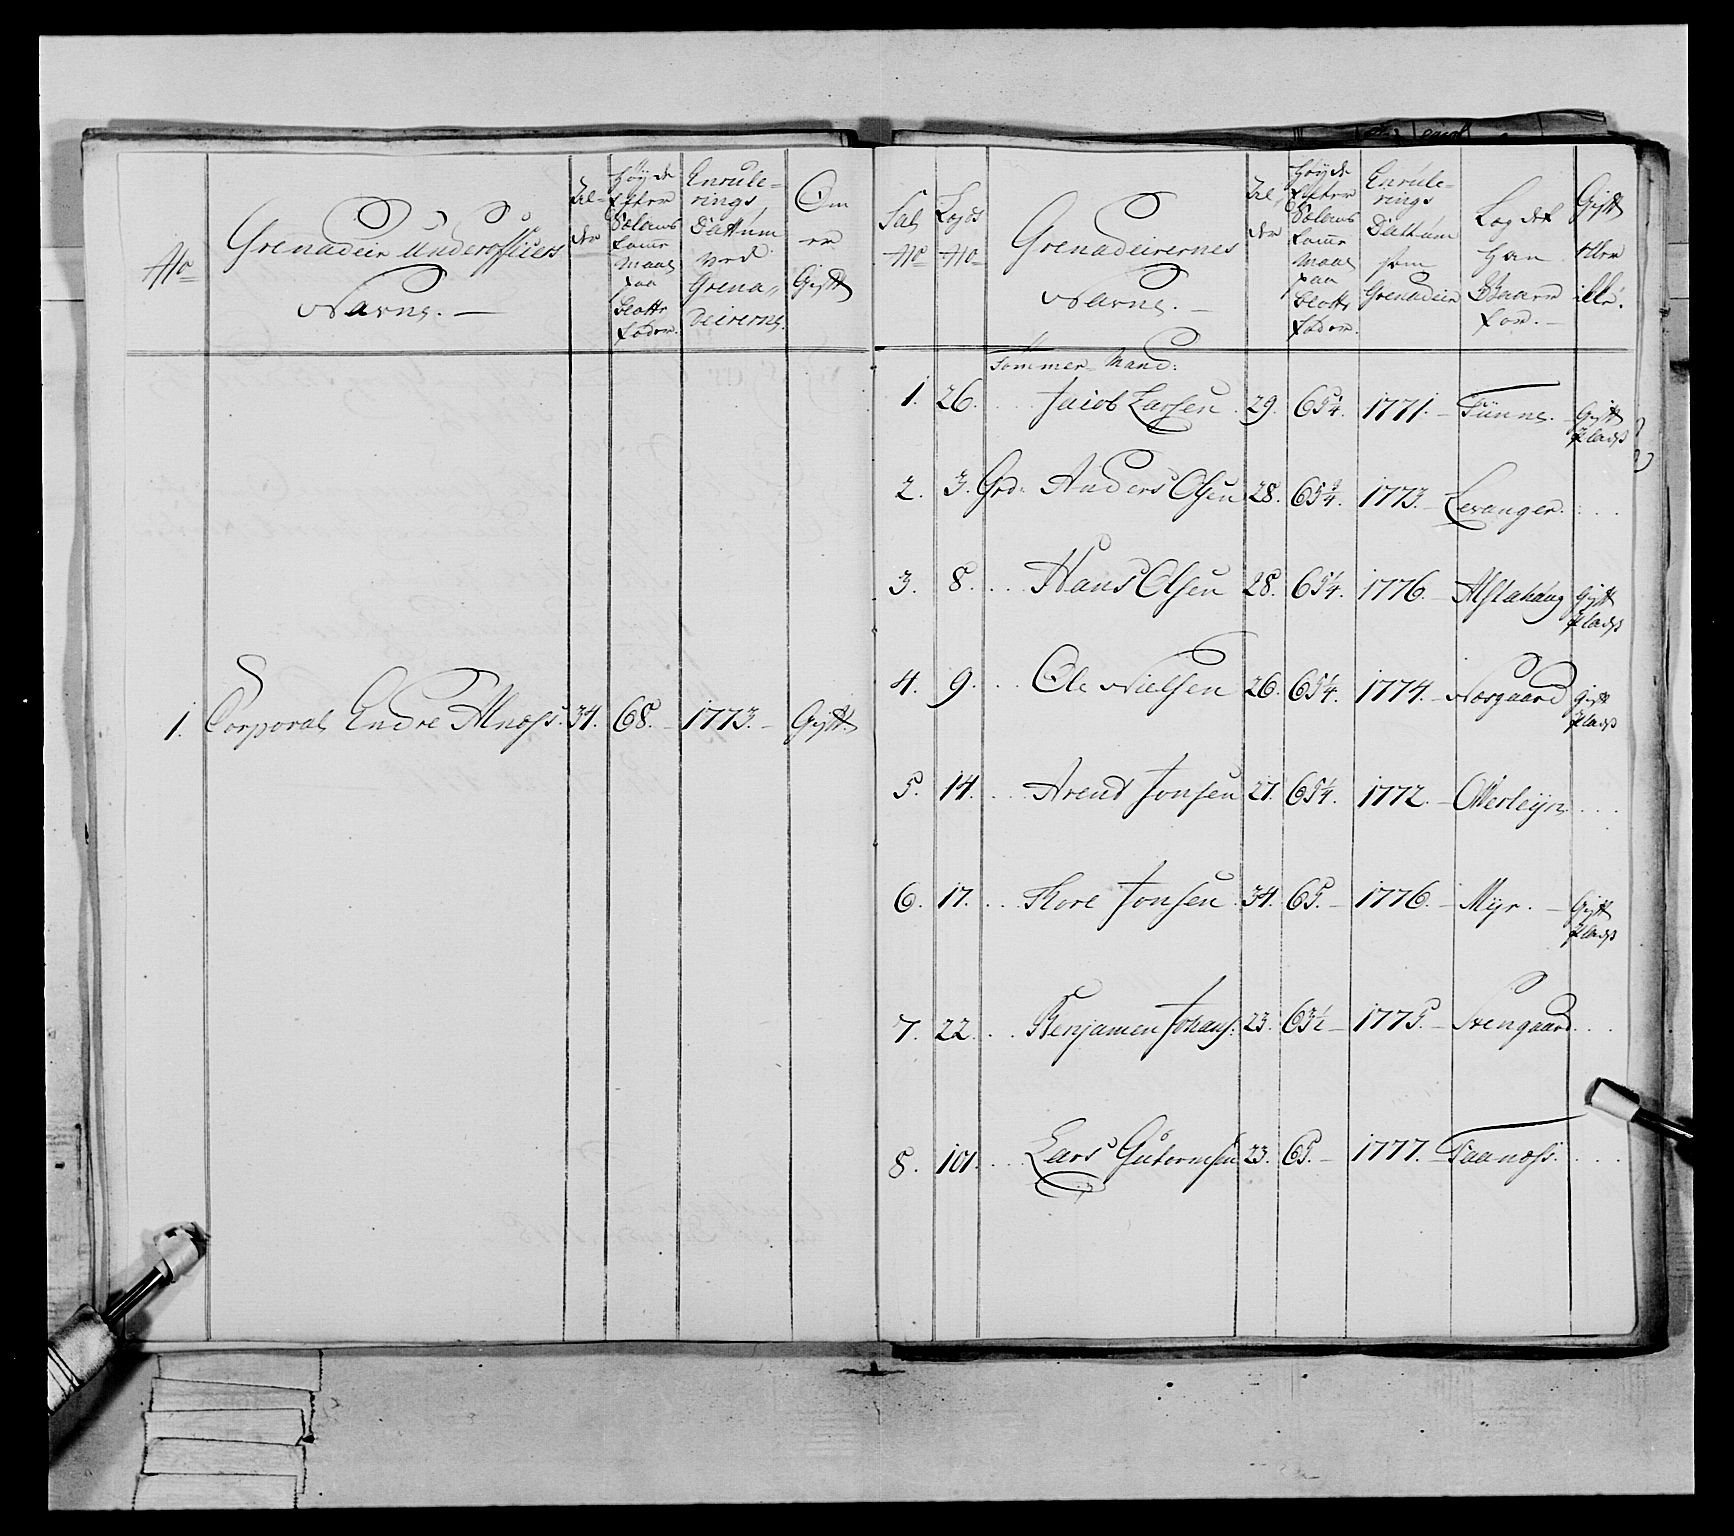 No
Grenadeer Underofficers
Navne. —
Al-
der
Höyde
efter
Solens
Tomme
Maal
paa
blotte
Föder.
Enrule-
rings
Dattum
ved
Grena-
deirerne.
Om
er
Gift
1. Corporal Endre Alnæss. 34. 68. — 1773. — Gift.
Tal
No
Logds
No
Grenadeirernes
Navne. —
Al-
der
Höyde
efter
Solens
Tomme
Maal
paa
blotte
Föder.
Enrule-
rings
Dattum
som
Grenadeer
Logdet
han
staar
for. —
Gift
eller
ille.
Tommer Mand:
1. 26. Jacob Larsen. 29. 65 1/4. 1771. — Tünne. Gift
Plads
2. 3. Grd: Anders Olsen 28. 65 1/4. 1773. — Levanger.
3. 8. Hans Olsen 28. 65 1/4. 1776. — Alstahaug Gift
Plads
4. 9. Ole Nielsen 26. 65 1/4. 1774. — Norgaard Gift
Plads
5. 14. Arent Jonsen 27. 65 1/4. 1772. —
6. 17. Tore Jonsen. 34. 65. — 1776. — Myr. — Gift
Plads
7. 22. Benjamen Johans: 23. 63 1/2 — 1775. — Steengaard
8. 101. Lars Gutormsen 23. 65. — 1777. — Faanæss.